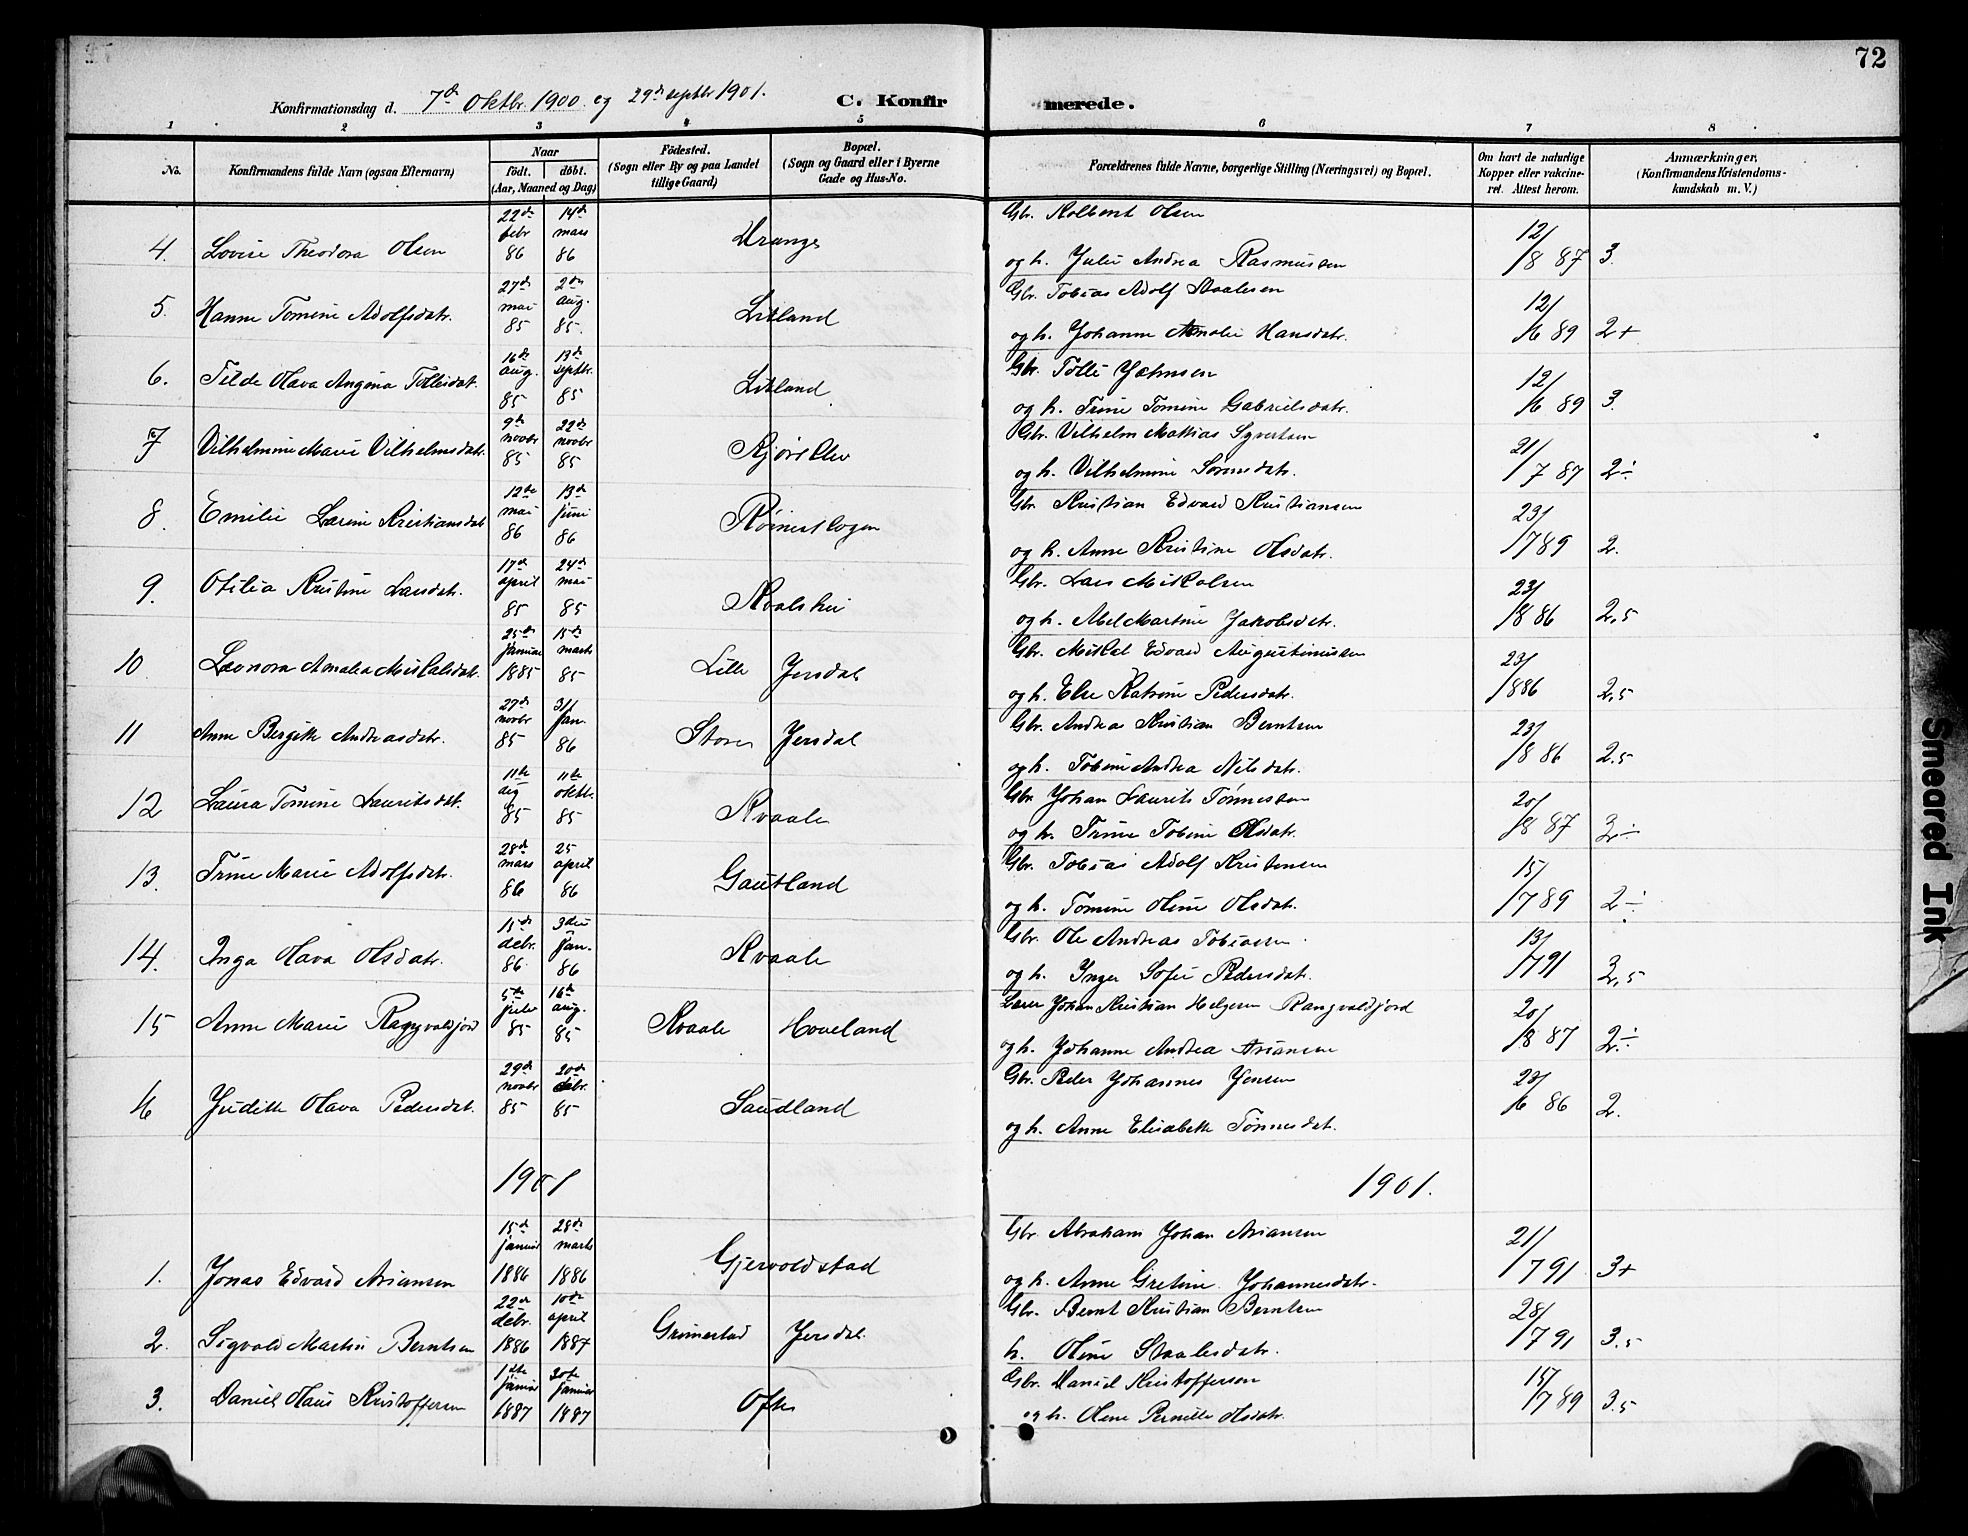 72
Konfirmationsdag d. 7de Oktbr. 1900 og 29de septbr 1901.
C. Konfirmerede.
1 2 3 4 5 6 7 8
No.
Konfirmandens fulde Navn (ogsaa Efternavn)
Naar
födt. döbt.
(Aar, Maaned og Dag)
Födested.
(Sogn eller By og paa Landet
tillige Gaard)
Bopæl.
(Sogn og Gaard eller i Byerne
Gade og Hus-No.
Forældrenes fulde Navne, borgerlige Stilling (Næringsvei) og Bopæl.
Om havt de naturlige
Kopper eller vakcine-
ret. Attest herom.
Anmærkninger.
(Konfirmandens Kristendoms-
kundskab m. V.)
4. Lovise Theodora Olsen 22de febr 86 14de mars 86 Gbr. Kolbent Olsen
og h. Julie Andrea Rasmussen 12/8 87 3.
5. Hanne Tomine Adolfsdatr. 27de mai 85 2den aug. 85. Litland Gbr. Tobias Adolf Staalesen
og h. Johanne Amalie Hansdatr. 12/6 89 2+
6. Tilde Olava Angina Tollisdat. 16de aug. 85 13de septbr. 85 Litland Gbr. Tolli
og h. Trine Tomine Gabrielsdatr. 12/6 89 3.
7 Vilhelmine Marie Vilhelmsdatr. 9de novbr 85 22de novbr 85 Gbr. Vilhelm Mathias Syvertsen
og h. Vilhelmine Sørensdatr. 21/7 87 2÷
8. Emilie Larine Kristiansdat 12te mai 86 13de juni 86 Gbr. Kristian Edvard Kristiansen
og h. Anne Kristine Olsdatr. 23/7 89 2.
9. Otilia Kristine Larsdatr. 17de april 85 24de mai 85 Gbr. Lars Mikalsen
og h. Abel Martine Jakobsdatr. 23/8 86 2,5
10. Leonora Amalia Mikkalsdatr. 25de januar 1885 15de marts 85 Lille Jersdal Gbr. Mikkel Edvard Augustinussen
og h. Else Katrine Pedersdatr. 23/8 86 2,5
11 Anne Bergitte Andreasdatr. 27de novbr 85 31/ jan. 86 Store Jersdal Gbr. Andrea Kristian Berntsen
og h. Tobine Andrea Nilsdatr. 23/8 86 2.5
12 Laura Tomine Lauritsdat. 11te aug 85 11te oktbr. 85 Kvaale Gbr. Johan Laurits Tønnessen
og h. Trine Tobine Olsdatr. 20/8 87 2÷
13. Trine Marie Adolfsdatr. 28de mars 86 25 april 86 Gautland Gbr. Tobias Adolf Kristensen
og h. Tomine Oline Olsdatr. 15/7 89 2÷
14. Inga Olava Olsdatr. 15de debr. 86 3die jan. 86 Kvaale Gbr. Ole Andreas Tobiasen
og h. Inger Sofie Pedersdatr. 13/7 91 2,5
15 Anne Marie Ragnvaldjord 5te julie 85 16de aug. 85 Kvaale Hoveland Lærer Johan Kristian Helgesen Rangvaldjord
og h. Johanne Andrea Ariansen 20/8 87 2÷
16 Judith Olava Pedersdat. 29de novbr 85 20de debr. 85 Saudland Gbr. Peder Johannes Jensen
og h. Anne Elisabeth Tønnesdat. 23/6 86 2.
1901 1901.
1. Jonas Edvard Ariansen 15de januar 1886 28de marts 1886 Gjervoldstad Gbr. Abraham Johan Ariansen
og h. Anne Gretine Johannesdatr. 21/7 91 3+
2. Sigvald Martin Berntsen 22de debr. 1886 10de april 1887 Grimestad Jersdal. Gbr. Bernt Kristian Berntsen
h. Oline Staalesdatr. 28/7 91 3.5
3. Daniel Olaus Kristoffersen 1ste januar 1887 30te januar 1887 Ofte Gbr. Daniel Kristoffersen
og h. Oline Pernille Olsdatr. 15/7 89 3.5
Smeared Ink